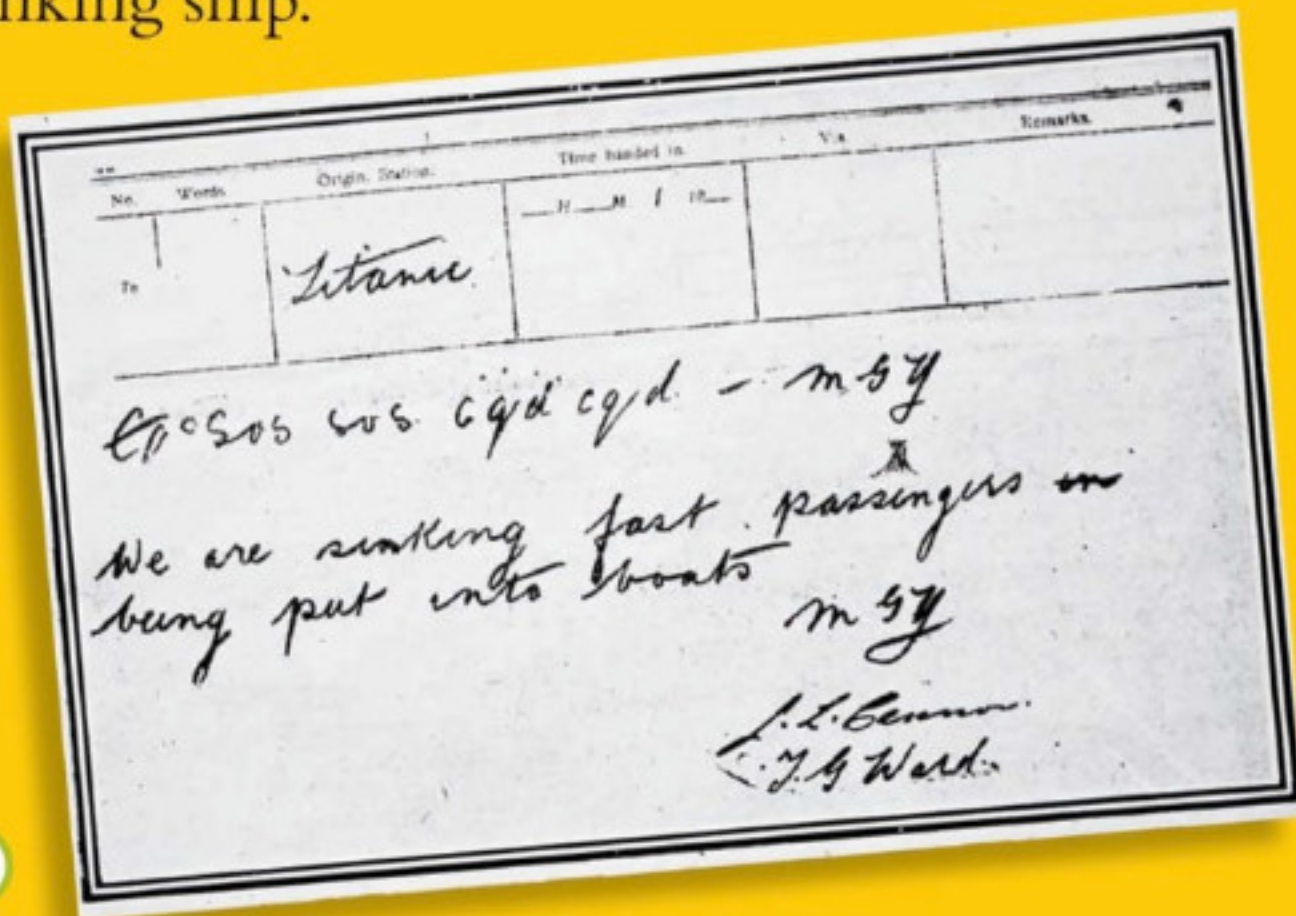 nking ship.
No. Words. Origin. Station. Time handed in. Via. Remarks.
H M / 19
To
Titanic.
SOS SOS. cqd cqd. - MGY
We are sinking fast. passengers
being put into boats
MGY
T G Ward.